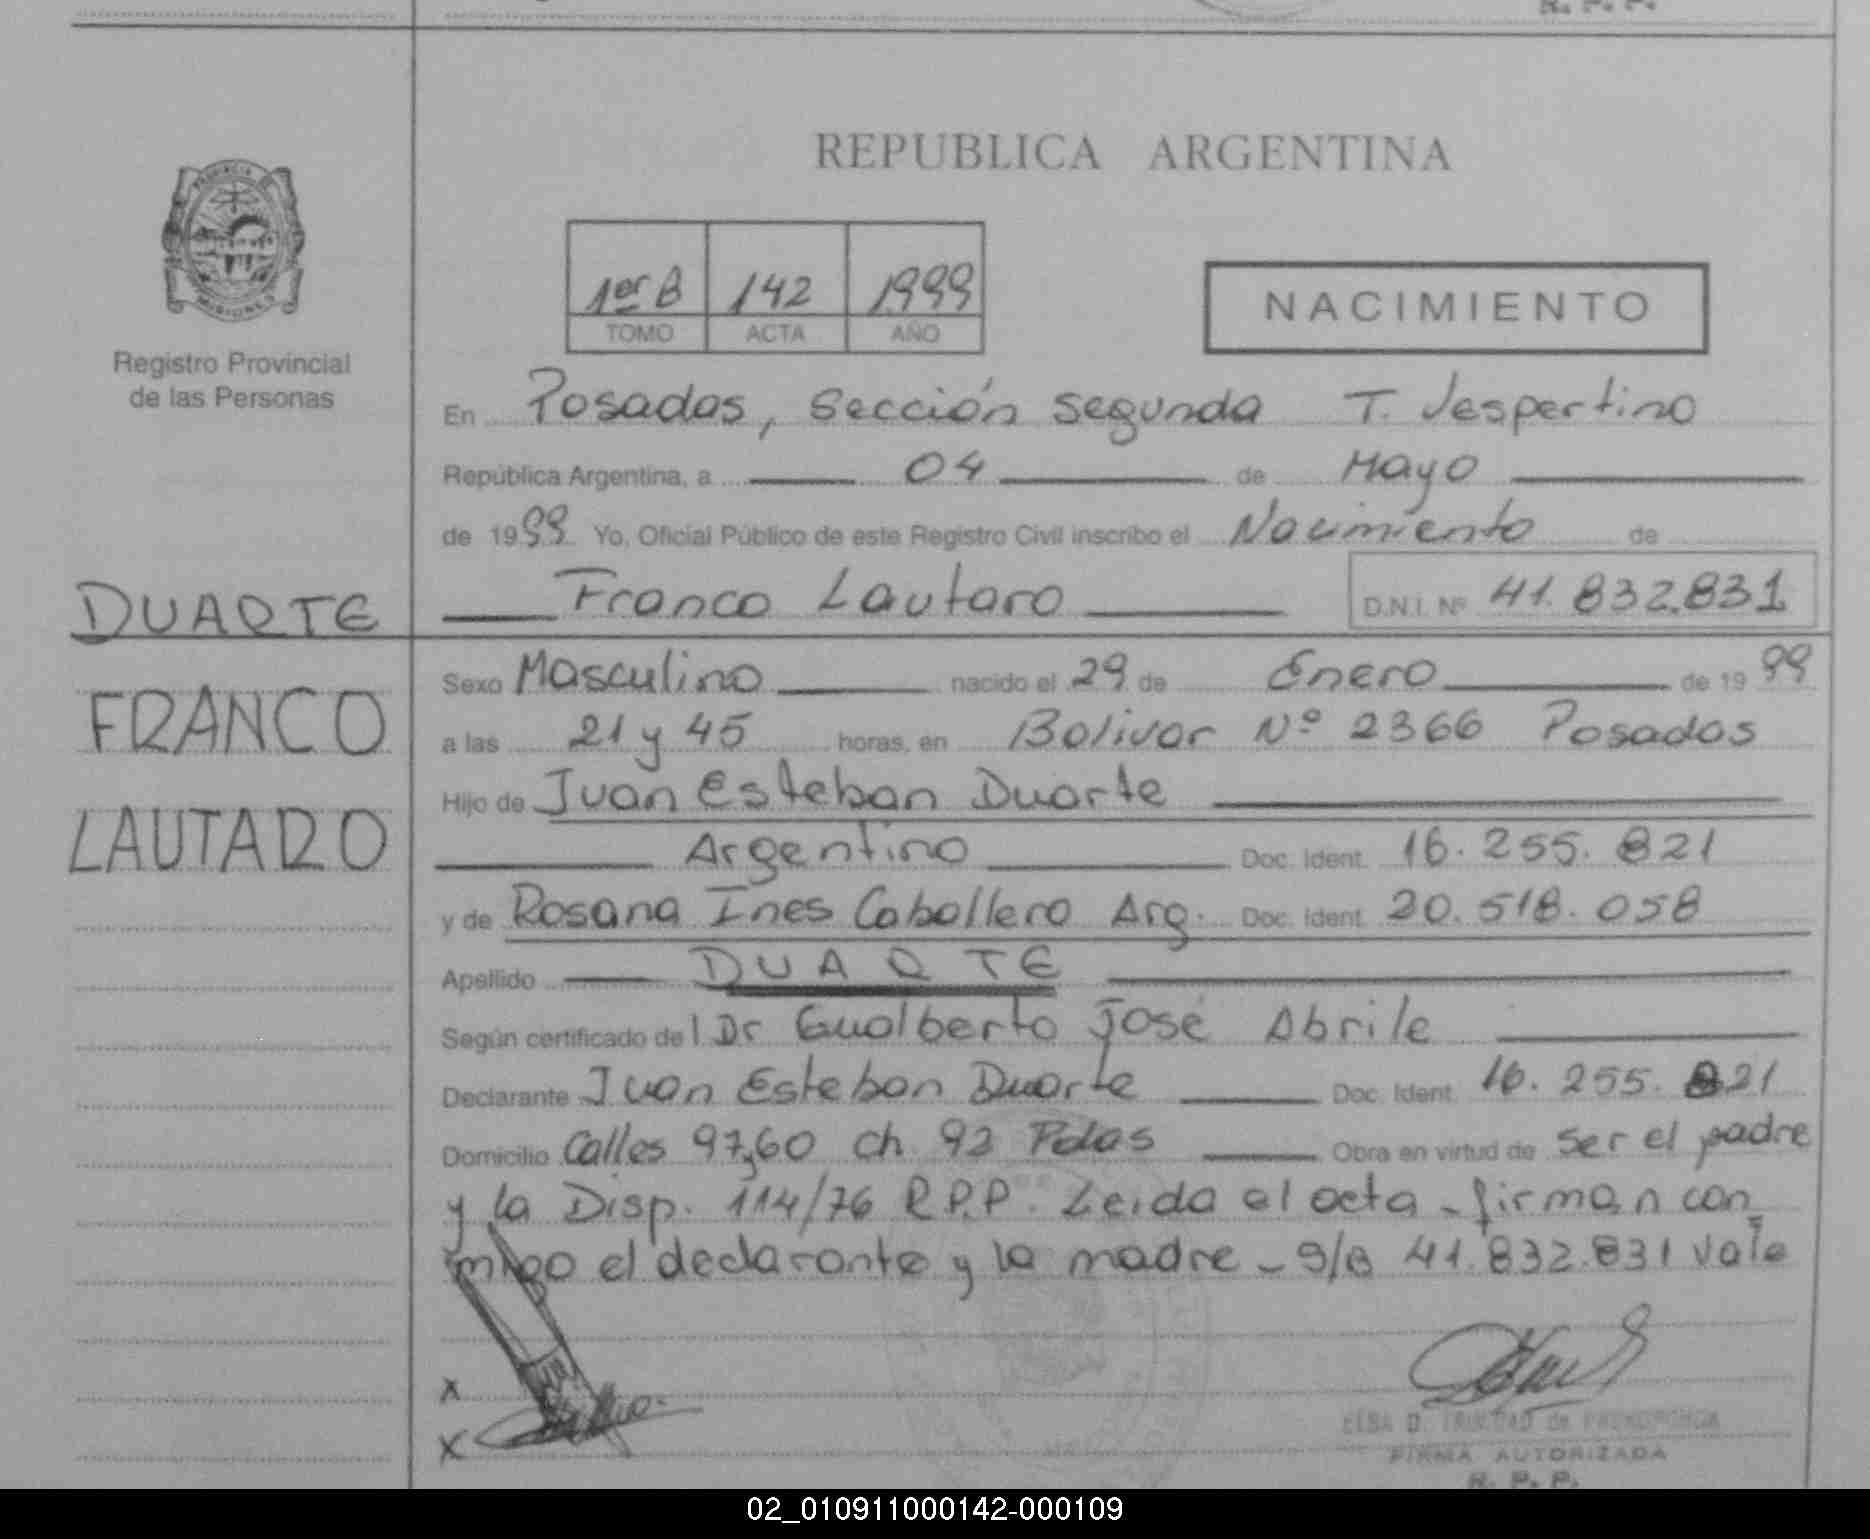 REPUBLICA ARGENTINA
PROVINCIA DE MISIONES
Registro Provincial
de las Personas
1er B 142 1999
TOMO ACTA AÑO
NACIMIENTO
En Posadas, Sección segunda T. Vespertino
República Argentina, a 04 de Mayo
de 1999 Yo, Oficial Público de este Registro Civil inscribo el Nacimiento de
Franco Lautaro D.N.I. Nº 41.832.831
DUARTE
FRANCO
LAUTARO
Sexo Masculino nacido el 29 de Enero de 1999
a las 21 y 45 horas, en Bolivar Nº 2366 Posadas
Hijo de Juan Esteban Duarte
Argentino Doc. Ident. 16.255.821
y de Rosana Ines Caballero Arg. Doc. Ident. 20.518.058
Apellido DUARTE
Según certificado del Dr Gualberto José Abrile
Declarante Juan Esteban Duarte Doc. Ident. 16.255.821
Domicilio Calles 97y60 ch. 92 Pdas Obra en virtud de ser el padre
y la Disp. 114/76 R.P.P. Leida el acta - firman con
migo el declarante y la madre - S/B 41.832.831 vale
X
X
ELSA D. TRINIDAD de
FIRMA AUTORIZADA
R. P. P.
02_010911000142-000109